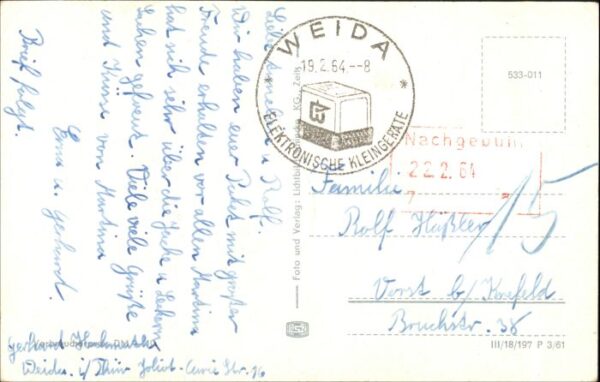 Liebe Annelies u. Rolf.
Wir haben euer Paket mit großer
Freude erhalten vor allen Martina
hat sich sehr über die Jacke u. Leckern
Sachen gefreut. Viele viele Grüße
und Küsse von Martina
Erna u. Gerhard.
Brief folgt.
Gerhard
Weida i/Thür Joliot-Curie Str. 16
WEIDA
19.2.64.--8
ELEKTRONISCHE KLEINGERÄTE
Foto und Verlag: Lichtbild KG., Zeitz
533-011
Nachgebühr
22.2.64
7
15
Familie
Rolf Häßler
Vorst b/ Krefeld
Bruchstr. 38
III/18/197 P 3/61